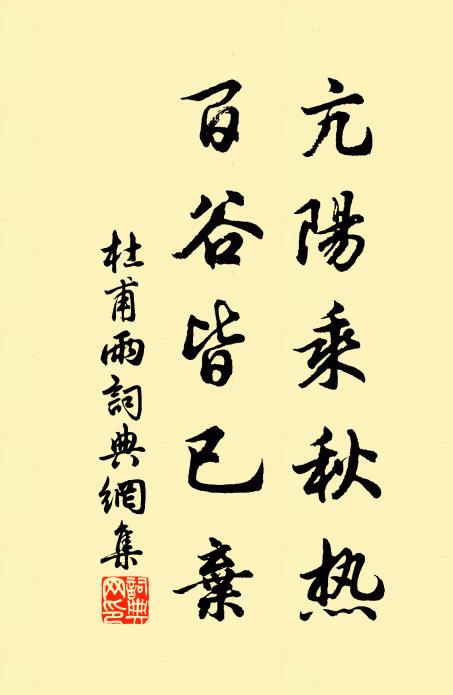 亢陽乘秋热
百谷皆已棄
杜甫雨詞典網集